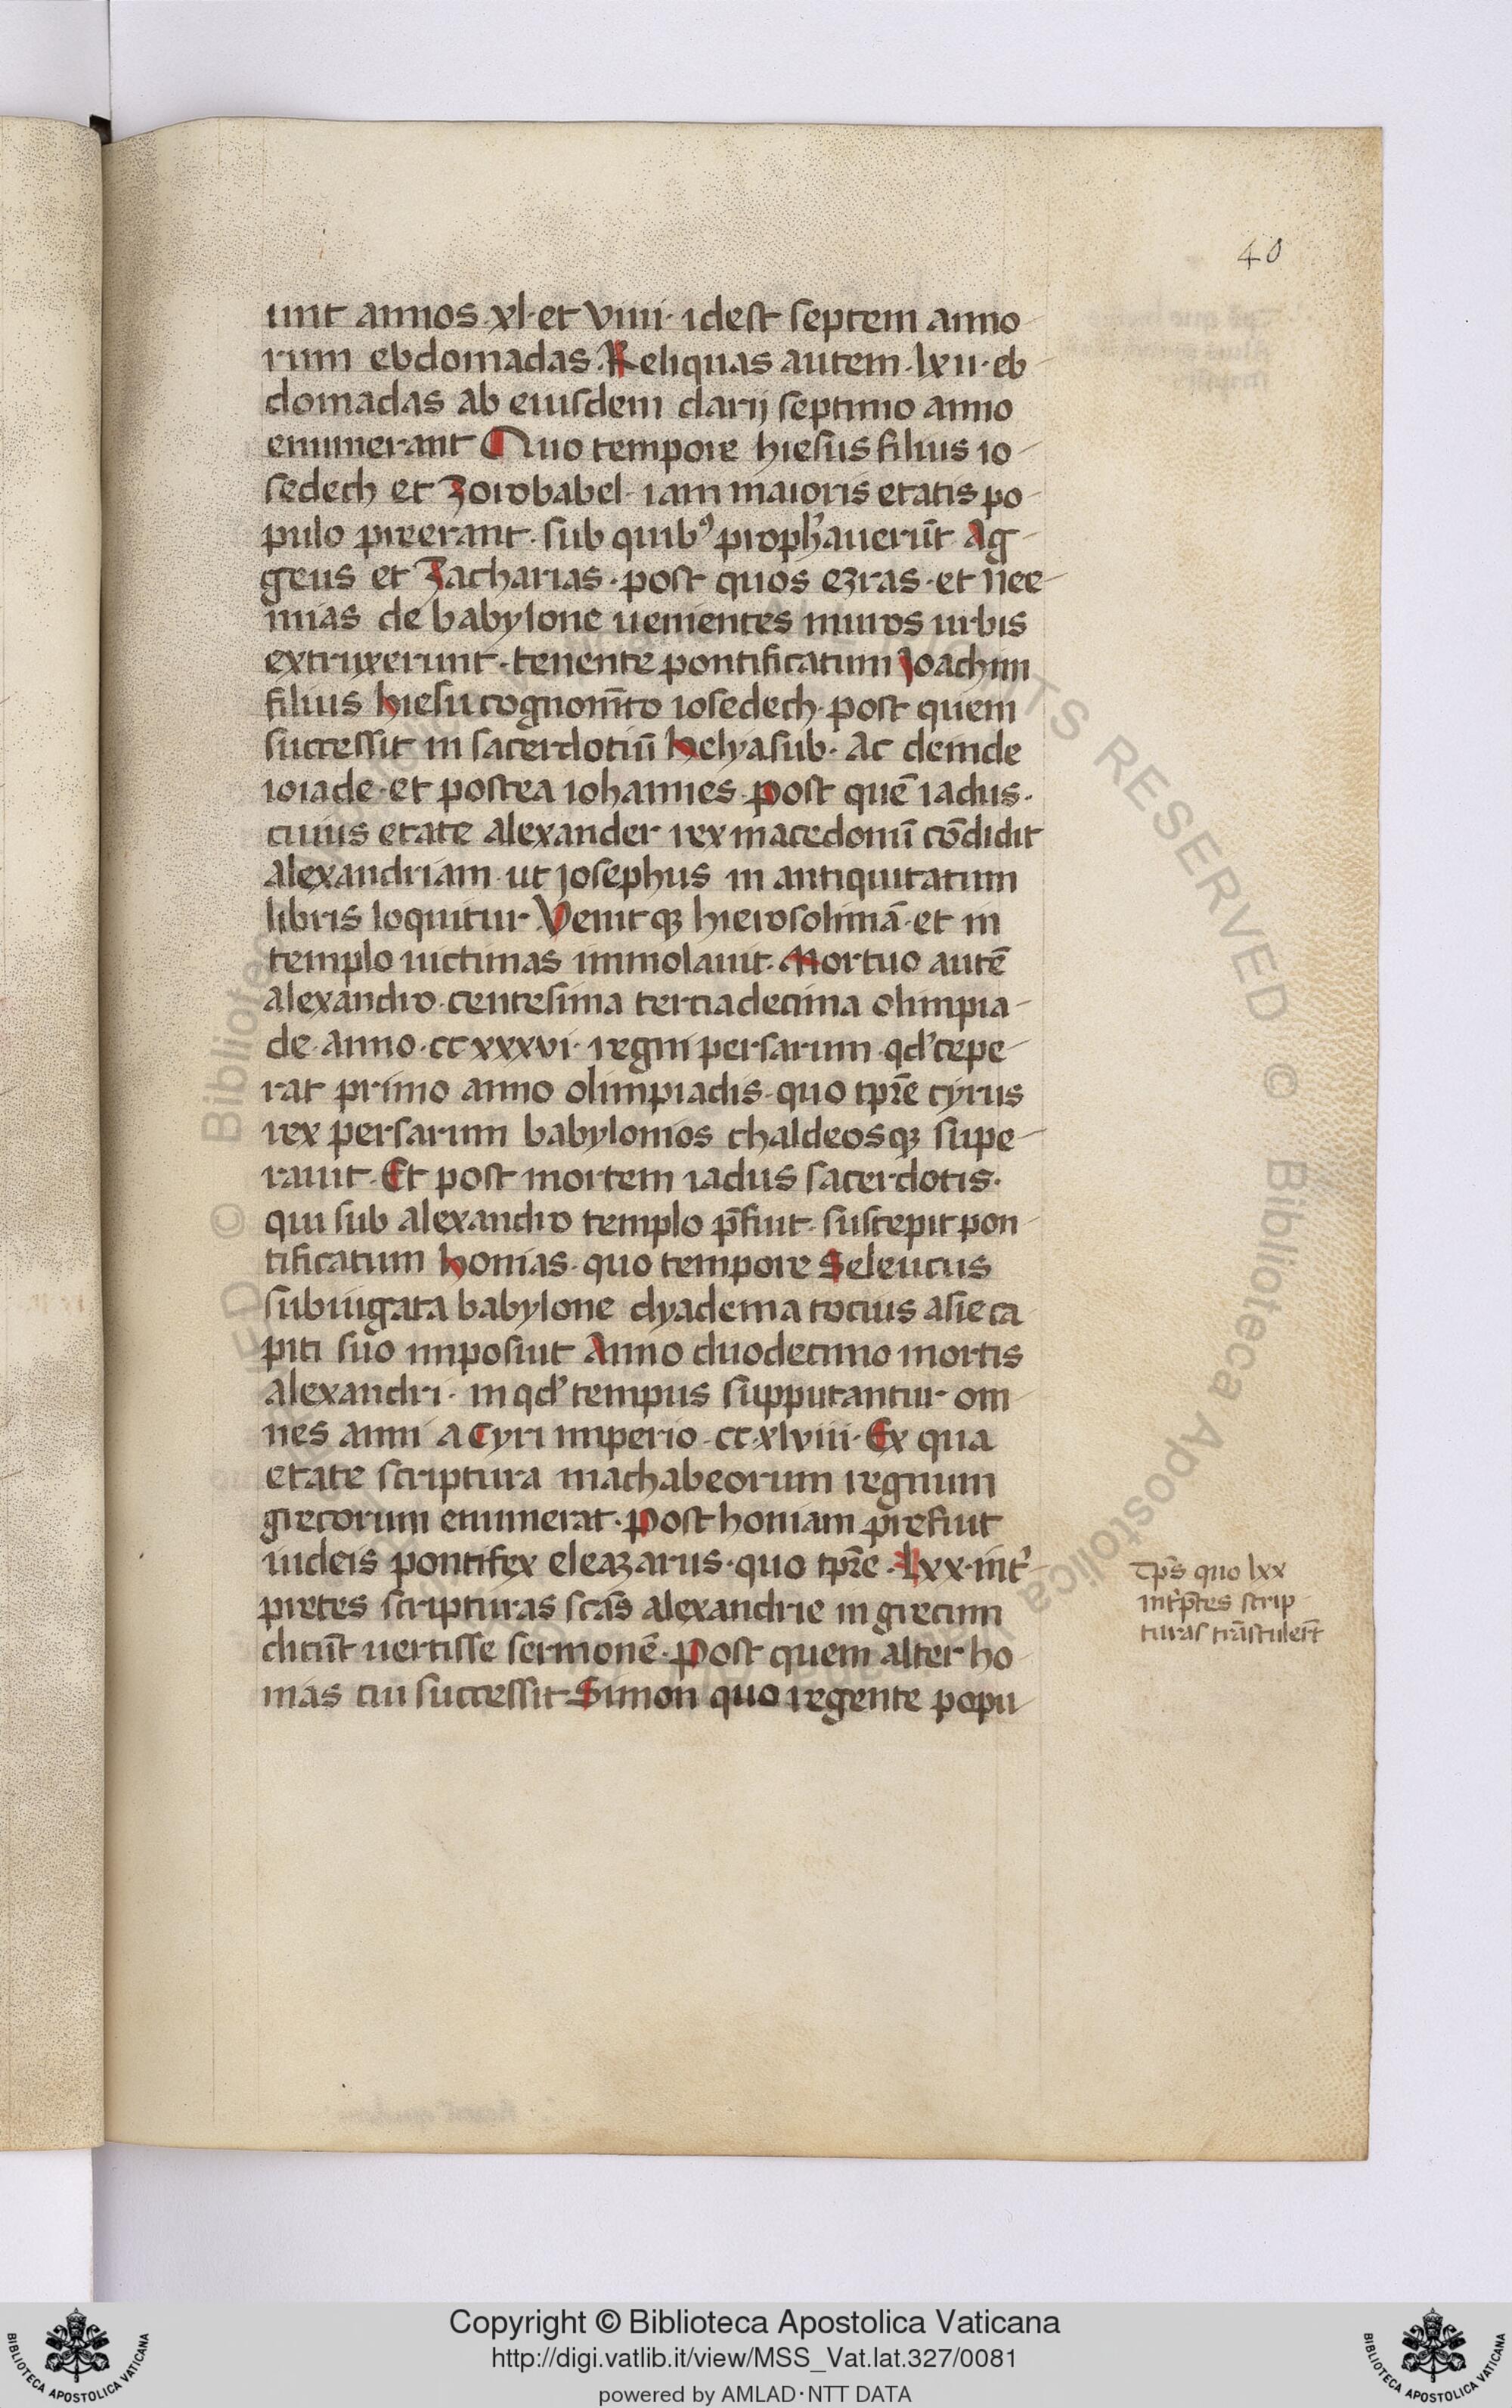 40
unt annos xl· et viiii· idest septem anno
rum ebdomadas. Reliquas autem· lxii· eb
domadas ab eiusdem darij septimo anno
enumerant Quo tempore hiesus filius io
sedech et Zorobabel· iam maioris etatis po
pulo preerant· sub quib⁹ proph̾auerūt Ag
geus et Zacharias· post quos ezras· et nee
mias de babylone uenientes muros urbis
extruxerunt· tenente pontificatum Joachim
filius hiesu cognom̄to iosedech· post quem
successit in sacerdotiū helyasub· Ac deinde
ioiade· et postea iohannes post quē iadus·
cuius etate alexander rex macedonū cōdidit
alexandriam· ut josephus in antiquitatum
libris loquitur Venitqꝫ hierosolimā· et in
templo uictimas immolauit· Mortuo autē
alexandro· centesima terciadecima olimpia
de· anno· ccxxxvi· regni persarum· qd̾ cepe
rat primo anno olimpiadis· quo tp̄re cyrus
rex persarum babylonios chaldeosqꝫ supe
rauit· Et post mortem iadus sacerdotis·
qui sub alexandro templo p̄fuit· suscepit pon
tificatum honias· quo tempore Seleucus
subiugata babylone dyadema tocius asie ca
piti suo imposuit Anno duodecimo mortis
alexandri· in qd̾ tempus supputantur om
nes anni a Cyri imperio· ccxlviii· Ex qua
etate scriptura machabeorum regnum
grecorum enumerat· Post honiam prefuit
iudeis pontifex eleazarus· quo tp̄re· Lxx· int̾
pretes scripturas scās alexandrie in grecum
dicūt uertisse sermonē· Post quem alter ho
nias cui successit Simon quo regente popu
Tp̄s quo lxx
int̾p̄tes scrip
turas trāstulert̄
Copyright © Biblioteca Apostolica Vaticana
http://digi.vatlib.it/view/MSS_Vat.lat.327/0081
powered by AMLAD·NTT DATA